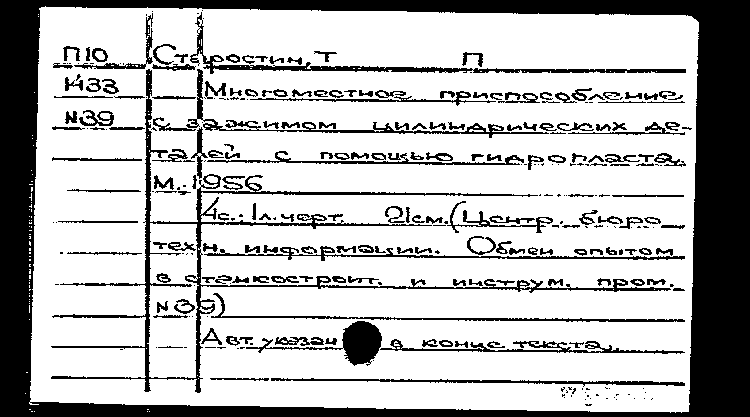 П10 Старостин, Т П
1433 Многоместное приспособление
N39 с зажимом цилиндрических де-
талей с помощью гидропласта.
М., 1956
4с., 1л. черт. 21см. (Центр. бюро
техн. информации. Обмен опытом
в станкостроит. и инструм. пром.
N39)
Авт. указан в конце текста.